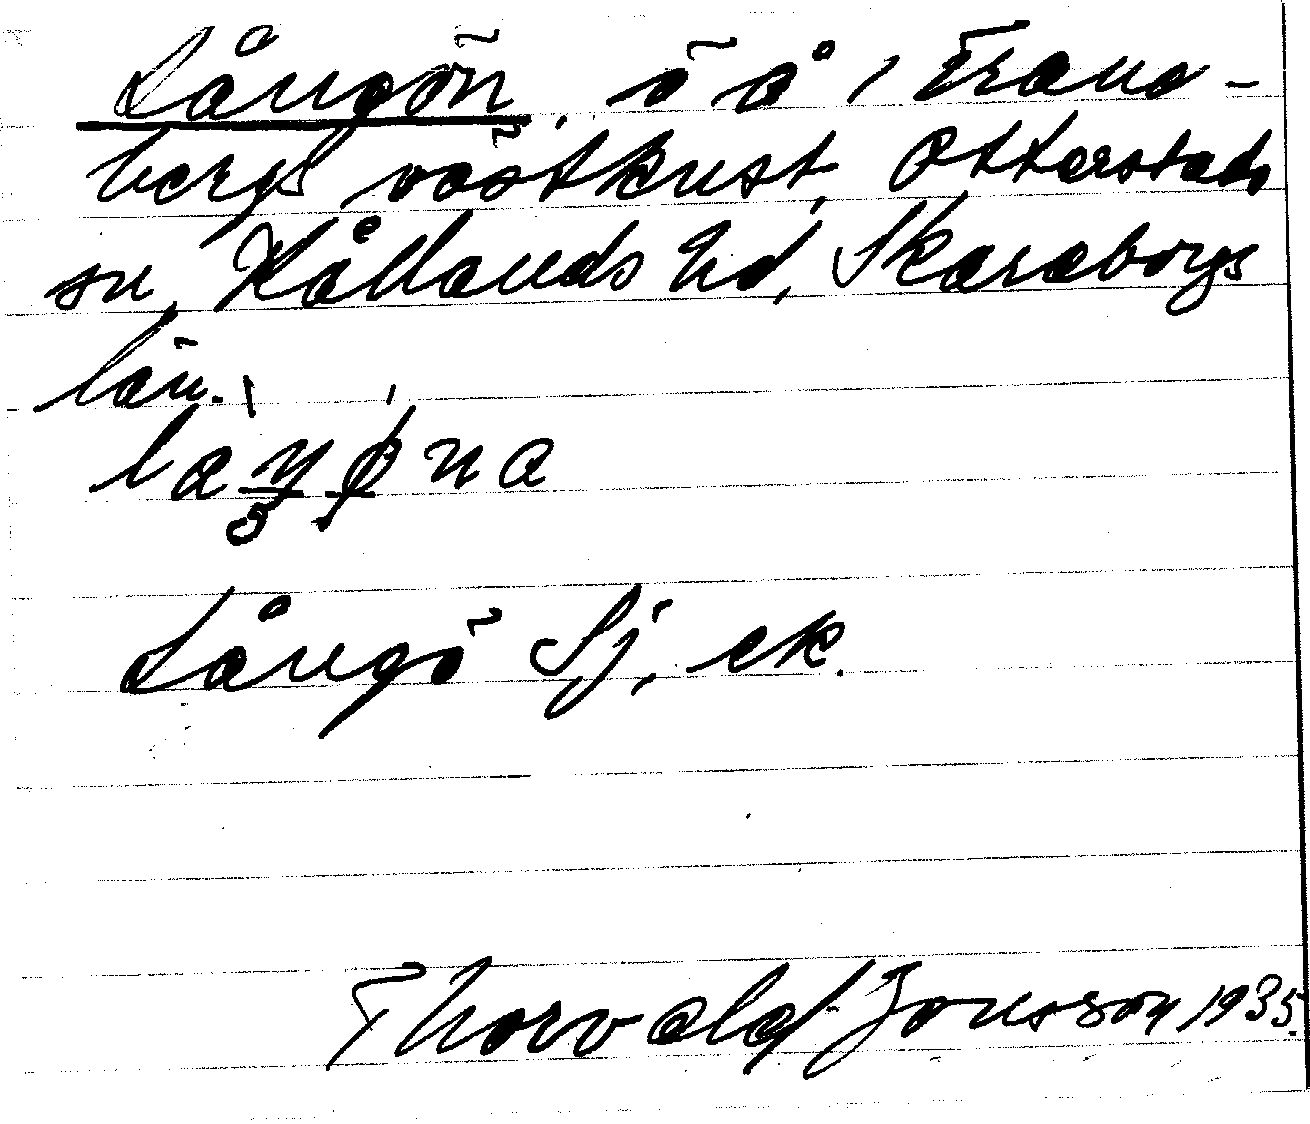 Långön, ö å i Trane-
bergs västkust, Otterstads
sn, Kållands hd, Skaraborgs
län.
Långö Sj, ek.
Thorvald Jonsson 1935.